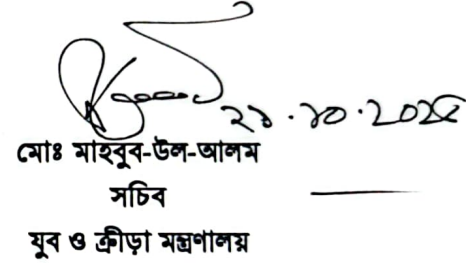 ২১.১০.২০২৫
মোঃ মাহবুব-উল-আলম
সচিব
যুব ও ক্রীড়া মন্ত্রণালয়